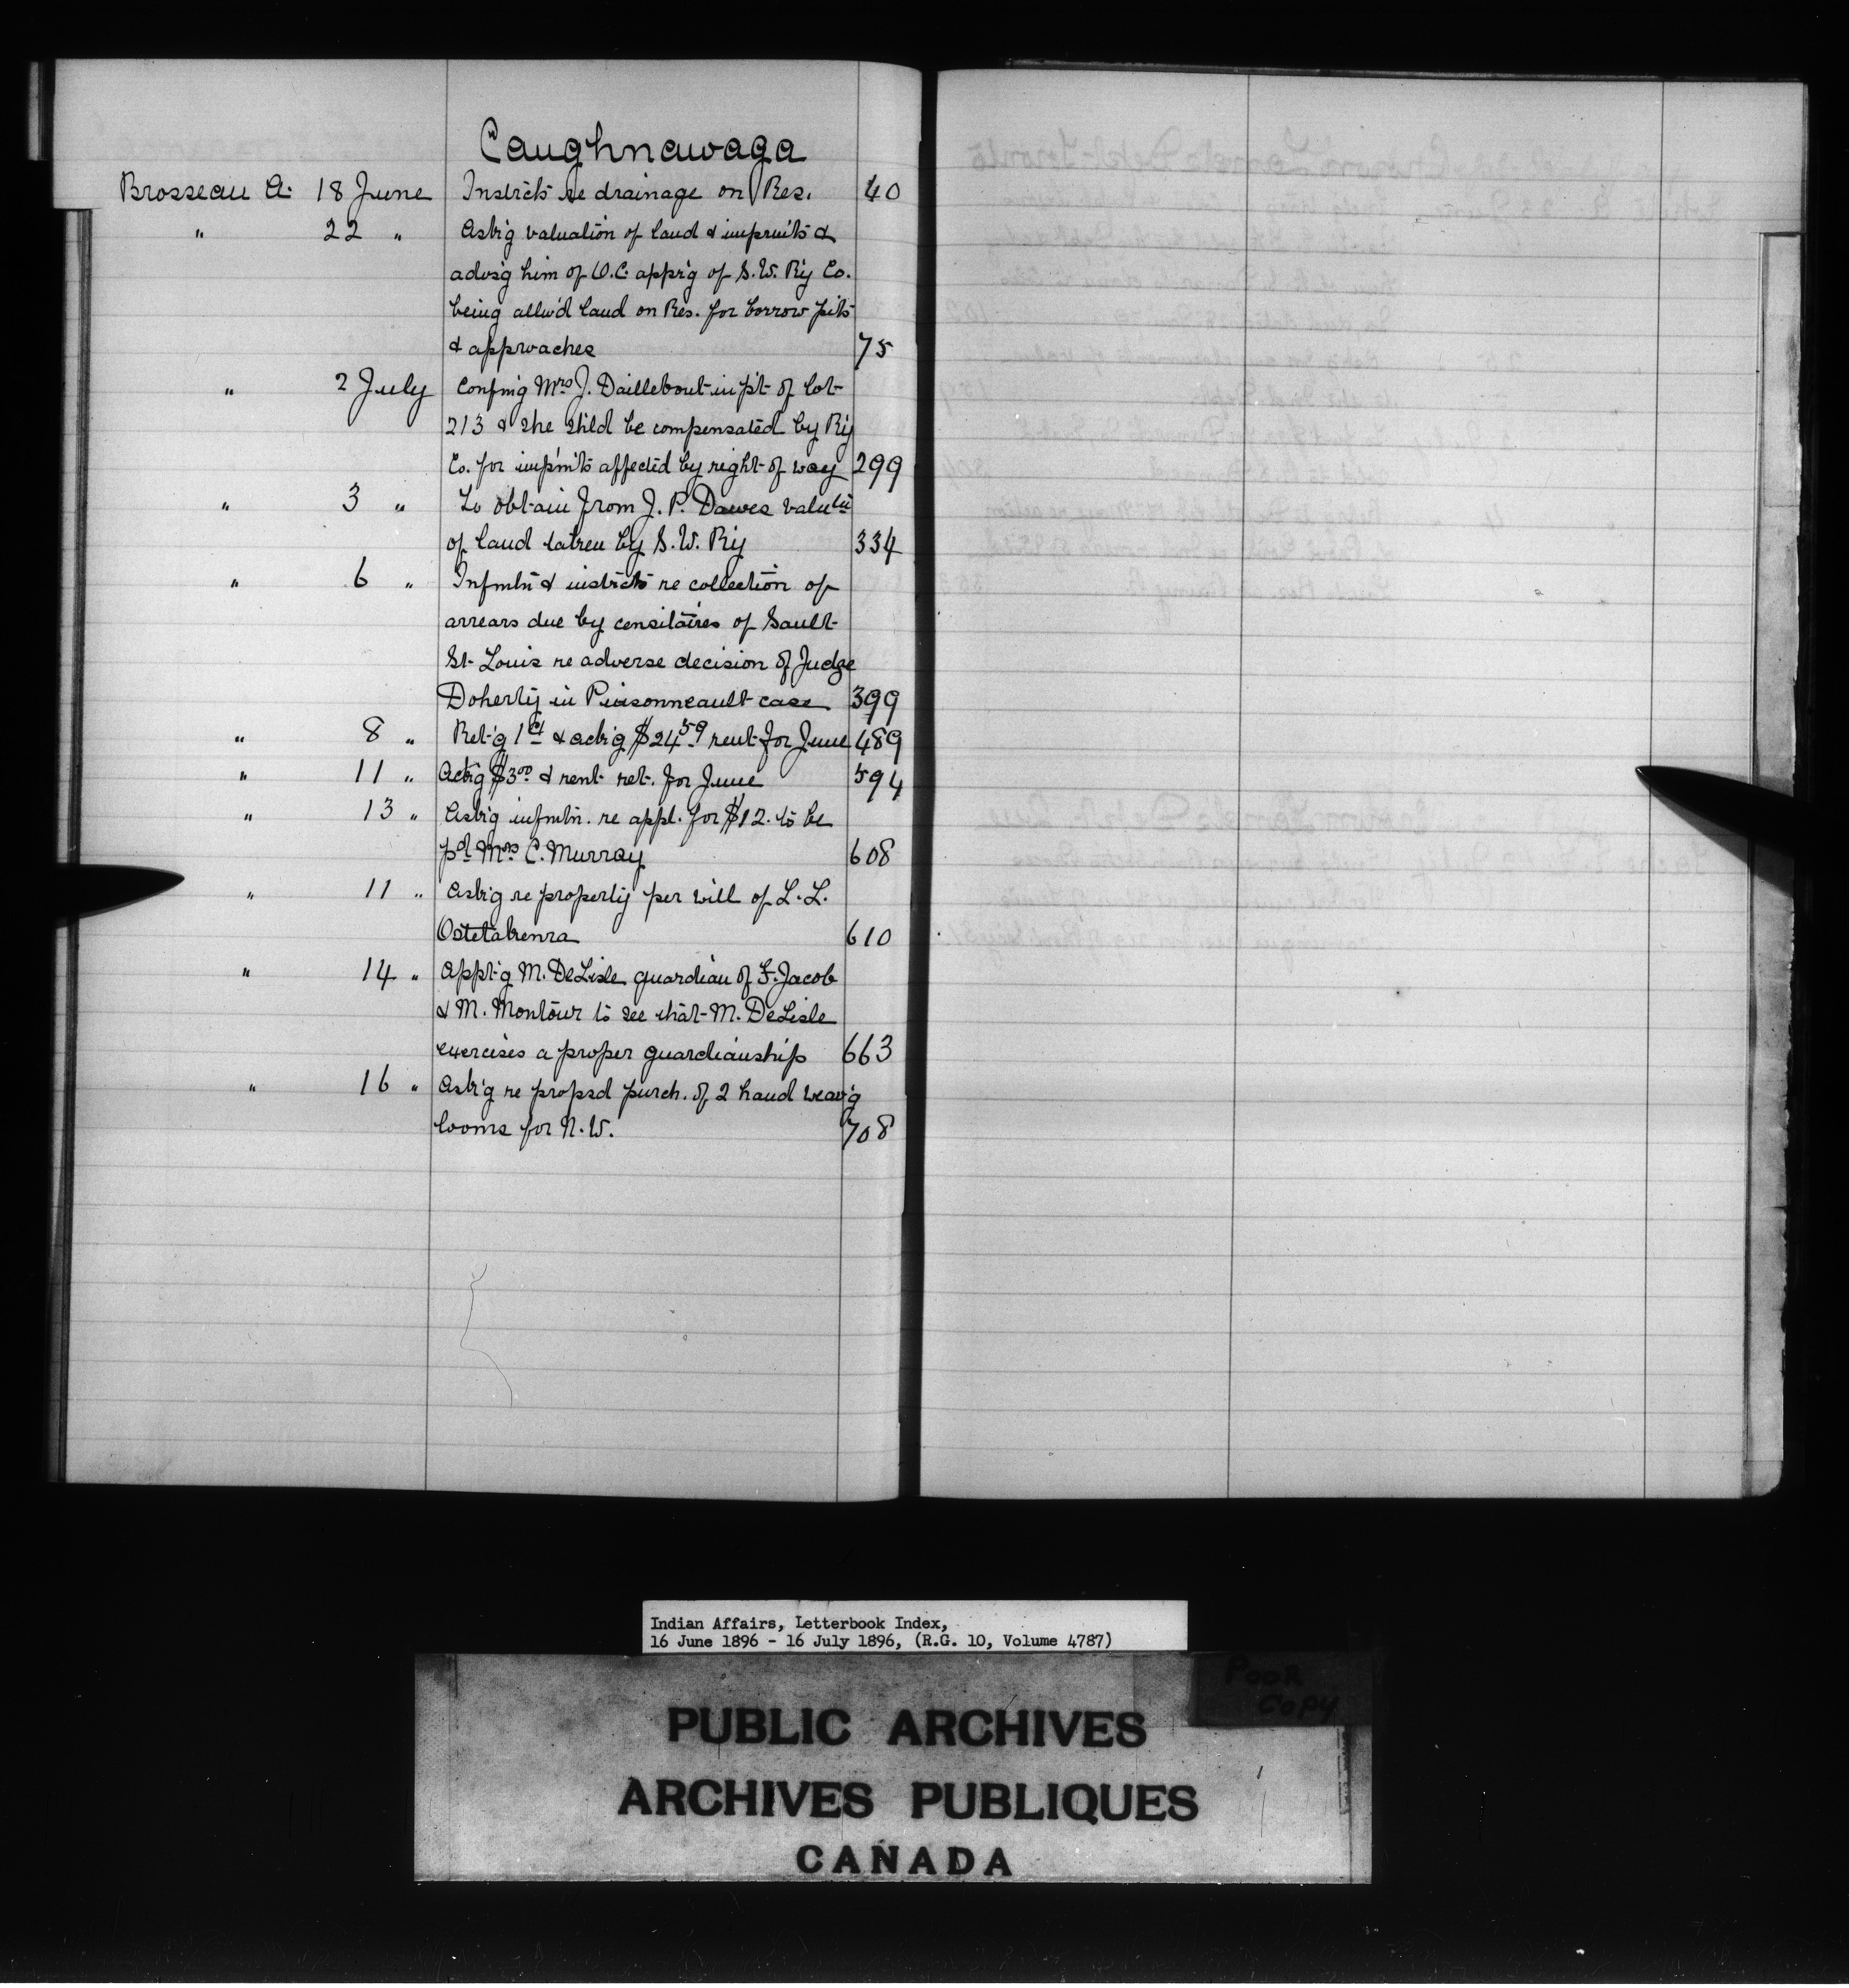 Caughnawaga
Brosseau A. 18 June Instrcts re drainage on Res. 40
" 22 " Ask'g valuation of land & imprmts &
advs'g him of O.C. appr'g of S.W. R'y Co.
being allw'd land on Res. for borrow pits
& approaches 75
" 2 July Confmg Mrs J. Daillebout in p't of lot
213 & she shld be compensated by R'y
Co. for impm'ts affected by right of way 299
" 3 " To obtain from J. P. Dawes valutn
of land taken by S. W. R'y 334
" 6 " Infmtn & instrcts re collection of
arrears due by censitaires of Sault
St. Louis re adverse decision of Judge
Doherty in Pinsonneault case 399
" 8 " Ret'g 1 & ack'g $24.59 rent for June 489
" 11 " Ack'g $3.00 & rent ret. for June 594
" 13 " Ask'g infmtn. re appl. for $12. to be
pd Mrs C. Murray 608
" 11 " Ask'g re property per will of L. L.
Ostetakenra 610
" 14 " Appt'g M. DeLisle guardian of F. Jacob
& M. Montour to see that M. DeLisle
exercises a proper guardianship 663
" 16 " Ask'g re propsd purch. of 2 hand weav'g
looms for N.W. 708
Indian Affairs, Letterbook Index,
16 June 1896 - 16 July 1896, (R.G. 10, Volume 4787)
POOR
COPY
PUBLIC ARCHIVES
ARCHIVES PUBLIQUES
CANADA